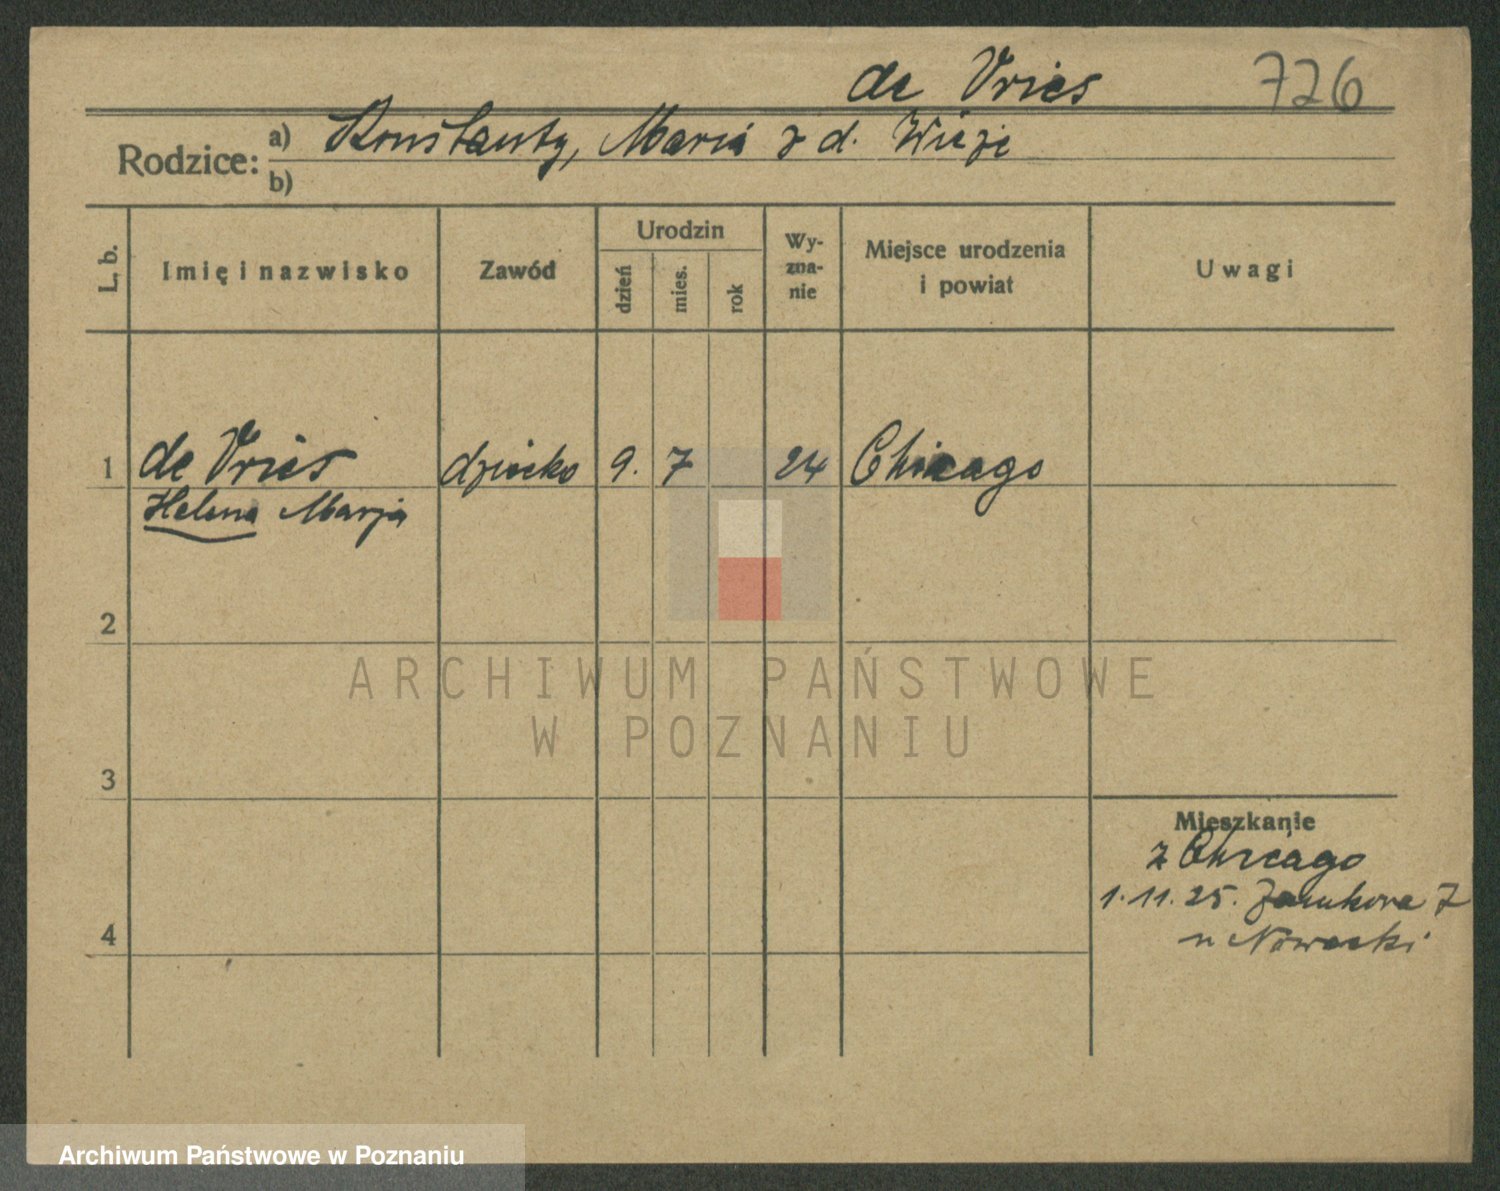 de Vries 726
Rodzice: a) Konstanty, Maria z d.
b)
L. b. Imię i nazwisko Zawód Urodzin Wy-zna-nie Miejsce urodzenia i powiat Uwagi
dzień mies. rok
1 de Vries dziecko 9. 7 24 Chicago
Helena Marja
2
3
Mieszkanie
z Chicago
1.11.25. Zamkowa 7
4 u Nowacki
ARCHIWUM PAŃSTWOWE
W POZNANIU
Archiwum Państwowe w Poznaniu